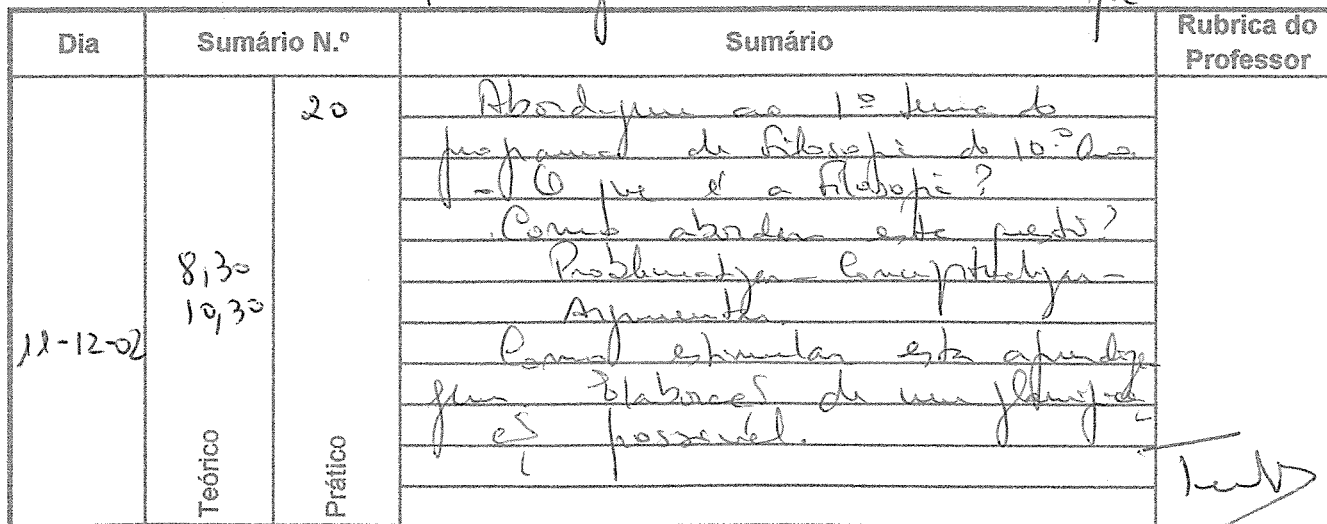 Dia Sumário N.º Sumário Rubrica do Professor
11-12-02
8,30
10,30
Teórico
20
Prático
Abordagem ao 1º tema do
programa de Filosofia do 10.º Ano
- O que é a Filosofia?
. Como abordar esta questão?
Problematizar - Conceptualizar -
Argumentar.
Como estimular esta aprendiza
gem. Elaboração de uma planifica-
ção possível.